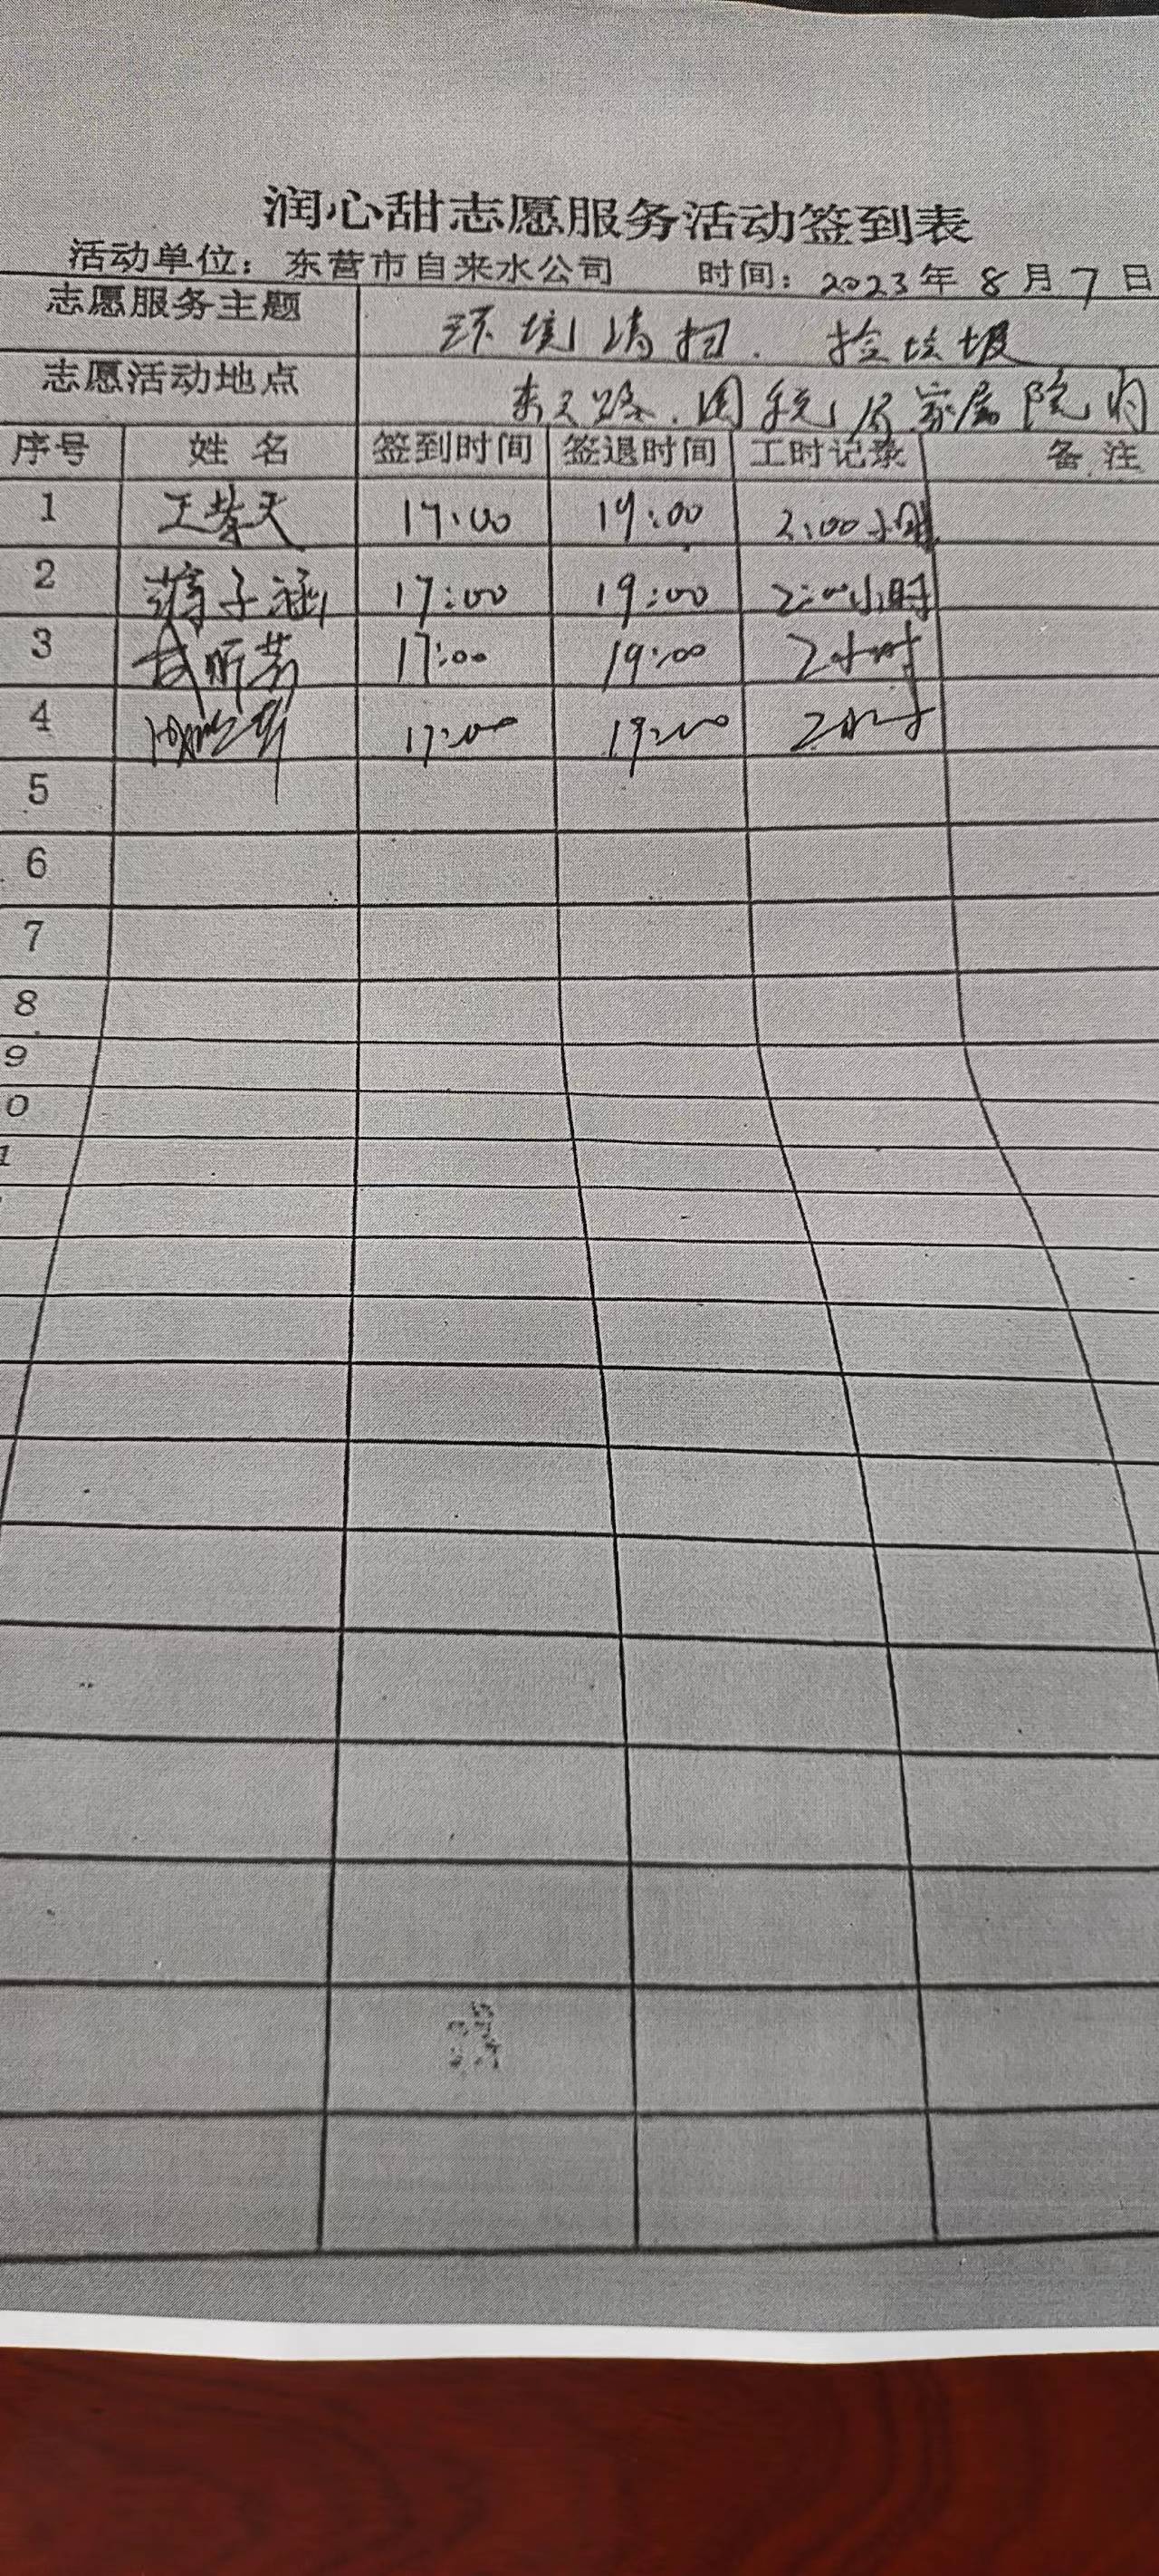 润心甜志愿服务活动签到表
活动单位：东营市自来水公司 时间：2023年8月7日
志愿服务主题 环境清扫. 捡垃圾
志愿活动地点 路.国税局家属院内
序号 姓名 签到时间 签退时间 工时记录 备注
1 王 天 17:00 19:00 2:00小时
2 子涵 17:00 19:00 2:00小时
3 昕 17:00 19:00 2小时
4 17:00 19:00 2小时
5
6
7
8
9
0
1